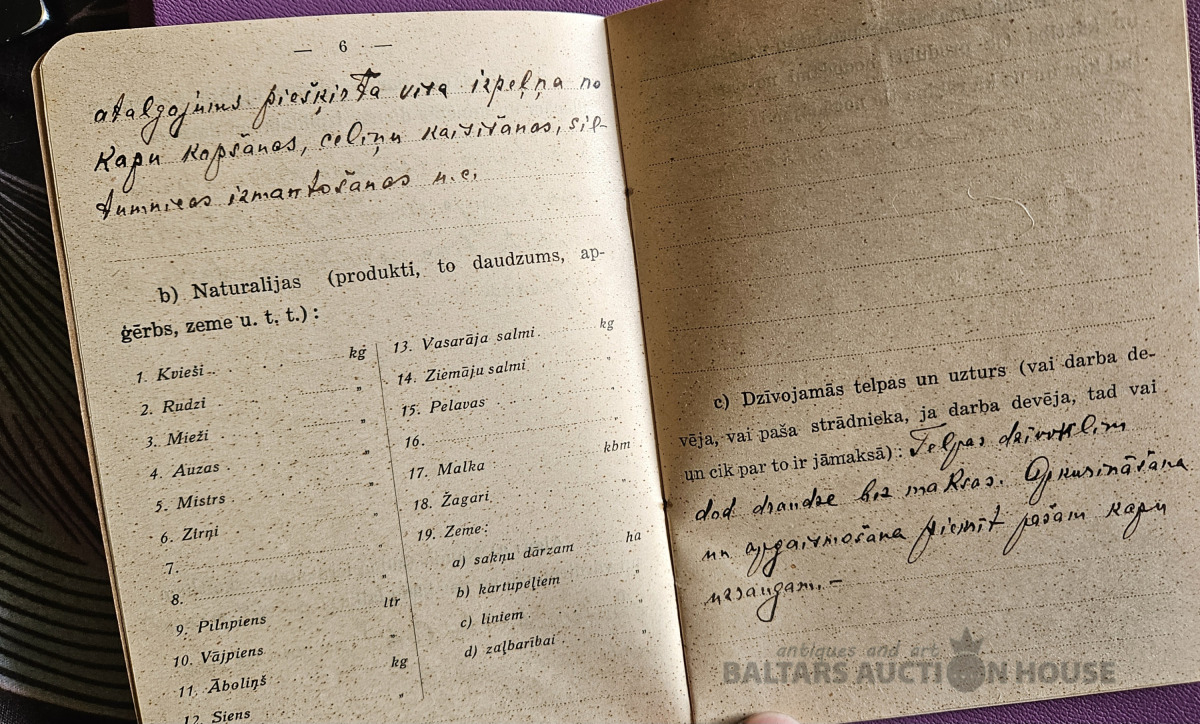 — 6 —
atalgojums piešķirta visa izpeļņa no
kapu kopšanas, celiņu kaisīšanas, sil-
tumnicas izmantošanas u.c.
b) Naturalijas (produkti, to daudzums, ap-
ģērbs, zeme u. t. t.):
1. Kvieši kg
2. Rudzi "
3. Mieži "
4. Auzas "
5. Mistrs "
6. Zirņi "
7. "
8. "
9. Pilnpiens ltr
10. Vājpiens "
11. Āboliņš kg
12. Siens "
13. Vasarāja salmi kg
14. Ziemāju salmi "
15. Pelavas "
16.
17. Malka kbm
18. Žagari "
19. Zeme:
a) sakņu dārzam ha
b) kartupeļiem "
c) liniem "
d) zaļbarībai "
c) Dzīvojamās telpas un uzturs (vai darba de-
vēja, vai paša strādnieka, ja darba devēja, tad vai
un cik par to ir jāmaksā): Telpas dzīvoklim
dod draudze bez maksas. Apkurināšana
un apgaismošana piemīt pašam kapu
uzraugam. –
antiques and art
BALTARS AUCTION HOUSE